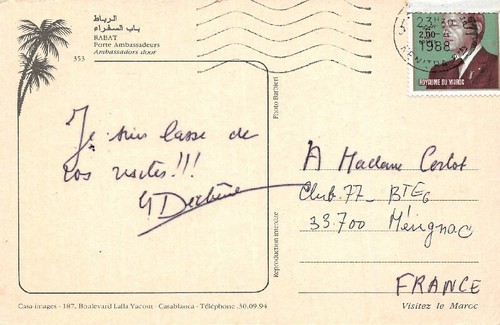 الرباط
باب السفراء
RABAT
Porte Ambassadeurs
Ambassadors door
353
23
1988
2,00
ROYAUME DU MAROC
Photo Barbieri
Je suis lasse de
vos visites!!!
G Derbène
Reproduction interdite
A Madame Corlot
Club. 77 - BTE 6
33.700 Mérignac
FRANCE
Casa images - 187, Boulevard Lalla Yacout - Casablanca - Téléphone: 30.09.94
Visitez le Maroc